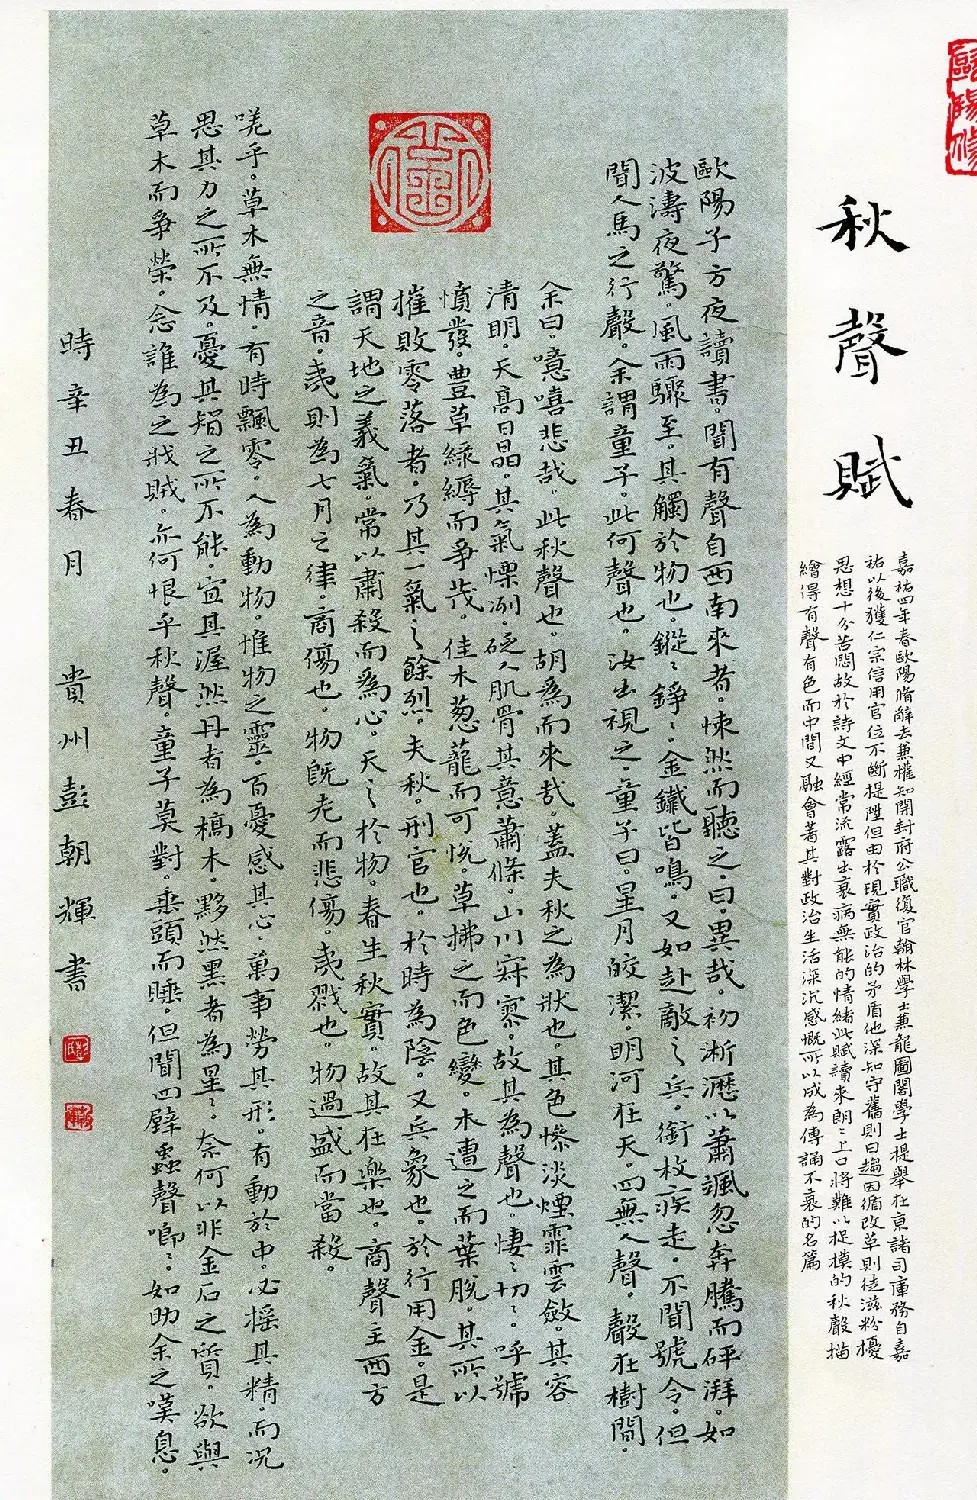 歐陽脩
秋聲賦
嘉祐四年春歐陽脩辭去兼權知開封府公職復官翰林學士兼龍圖閣學士提舉在京諸司庫務自嘉
祐以後獲仁宗信用官位不斷提陞但由於現實政治的矛盾他深知守舊則日趨因循改革則徒滋紛擾
思想十分苦悶故於詩文中經常流露出衰病無能的情緒此賦讀來朗〻上口將難以捉摸的秋聲描
繪得有聲有色而中間又融會著其對政治生活深沉感慨所以成為傳誦不衰的名篇
歐陽子方夜讀書。聞有聲自西南來者。悚然而聽之。曰。異哉。初淅瀝以蕭颯忽奔騰而砰湃。如
波濤夜驚。風雨驟至。其觸於物也。鏦〻錚〻。金鐵皆鳴。又如赴敵之兵。銜枚疾走。不聞號令。但
聞人馬之行聲。余謂童子。此何聲也。汝出視之。童子曰。星月皎潔。明河在天。四無人聲。聲在樹間。
余曰。噫嘻悲哉。此秋聲也。胡為而來哉。蓋夫秋之為狀也。其色慘淡煙霏雲斂。其容
清明。天高日晶。其氣慄冽。砭人肌骨其意蕭條。山川寂寥。故其為聲也。悽〻切〻。呼號
憤發。豐草綠縟而爭茂。佳木蔥蘢而可悅。草拂之而色變。木遭之而葉脫。其所以
摧敗零落者。乃其一氣之餘烈。夫秋。刑官也。於時為陰。又兵象也。於行用金。是
謂天地之義氣。常以肅殺而為心。天之於物。春生秋實。故其在樂也。商聲主西方
之音。夷則為七月之律。商傷也。物既老而悲傷。夷戮也。物過盛而當殺。
嗟乎。草木無情。有時飄零。人為動物。惟物之靈。百憂感其心。萬事勞其形。有動於中。必搖其精。而況
思其力之所不及。憂其智之所不能。宜其渥然丹者為槁木。黟然黑者為星〻。奈何以非金石之質。欲與
草木而爭榮。念誰為之戕賊。亦何恨乎秋聲。童子莫對。垂頭而睡。但聞四壁蟲聲唧〻。如助余之嘆息。
時辛丑春月 貴州彭朝輝書